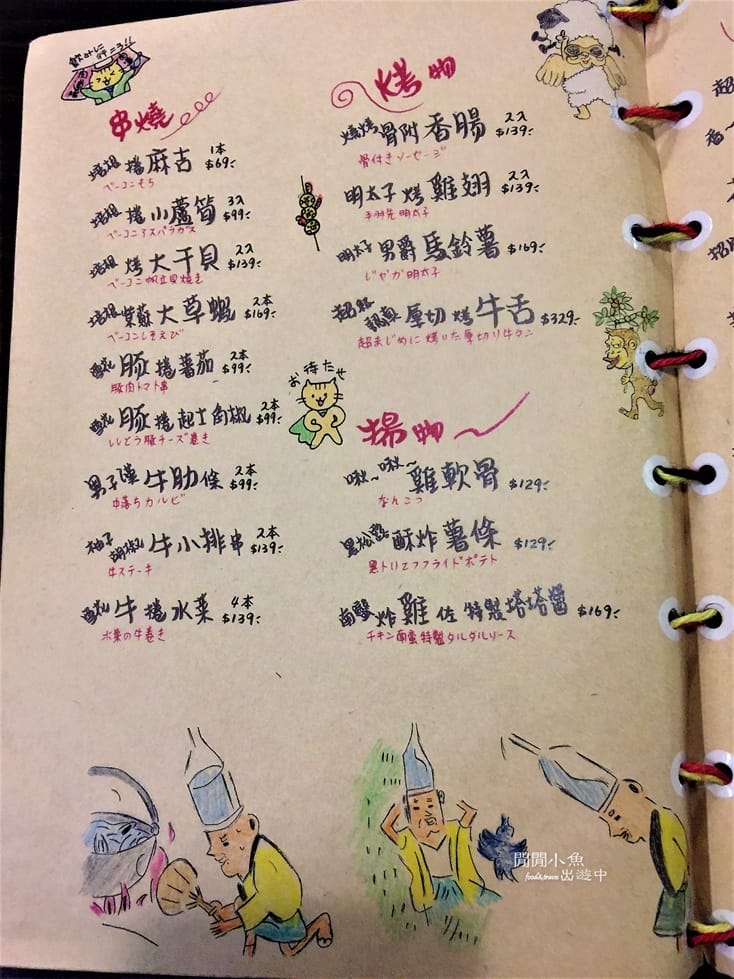 串燒
培根捲麻吉 1本 $69.-
ベーコンもち
培根捲小蘆筍 3入 $99.-
ベーコンアスパラガス
培根烤大干貝 2入 $139.-
ベーコン帆立貝焼き
培根紫蘇大草蝦 2本 $169.-
ベーコンしそえび
豚捲番茄 2本 $99.-
豚肉トマト串
豚捲起士角椒 2本 $99.-
ししとう豚チーズ巻き
男子漢牛肋條 2本 $99.-
中落ちカルビ
柚子胡椒牛小排串 2本 $139.-
牛ステーキ
牛捲水菜 4本 $139.-
水菜の牛巻き
烤物
燒烤骨附香腸 2入 $139.-
骨付きソーセージ
明太子烤雞翅 2入 $139.-
手羽先明太子
明太子男爵馬鈴薯 $169.-
じゃが明太子
超級認真厚切烤牛舌 $329.-
超まじめに焼いた厚切り牛タン
お待たせ
揚物
啾~啾~雞軟骨 $129.-
なんこつ
黑松露酥炸薯條 $129.-
黒トリュフフライドポテト
南蠻炸雞佐特製塔塔醬 $169.-
チキン南蛮特製タルタルソース
閒閒小魚
food&travel 出遊中